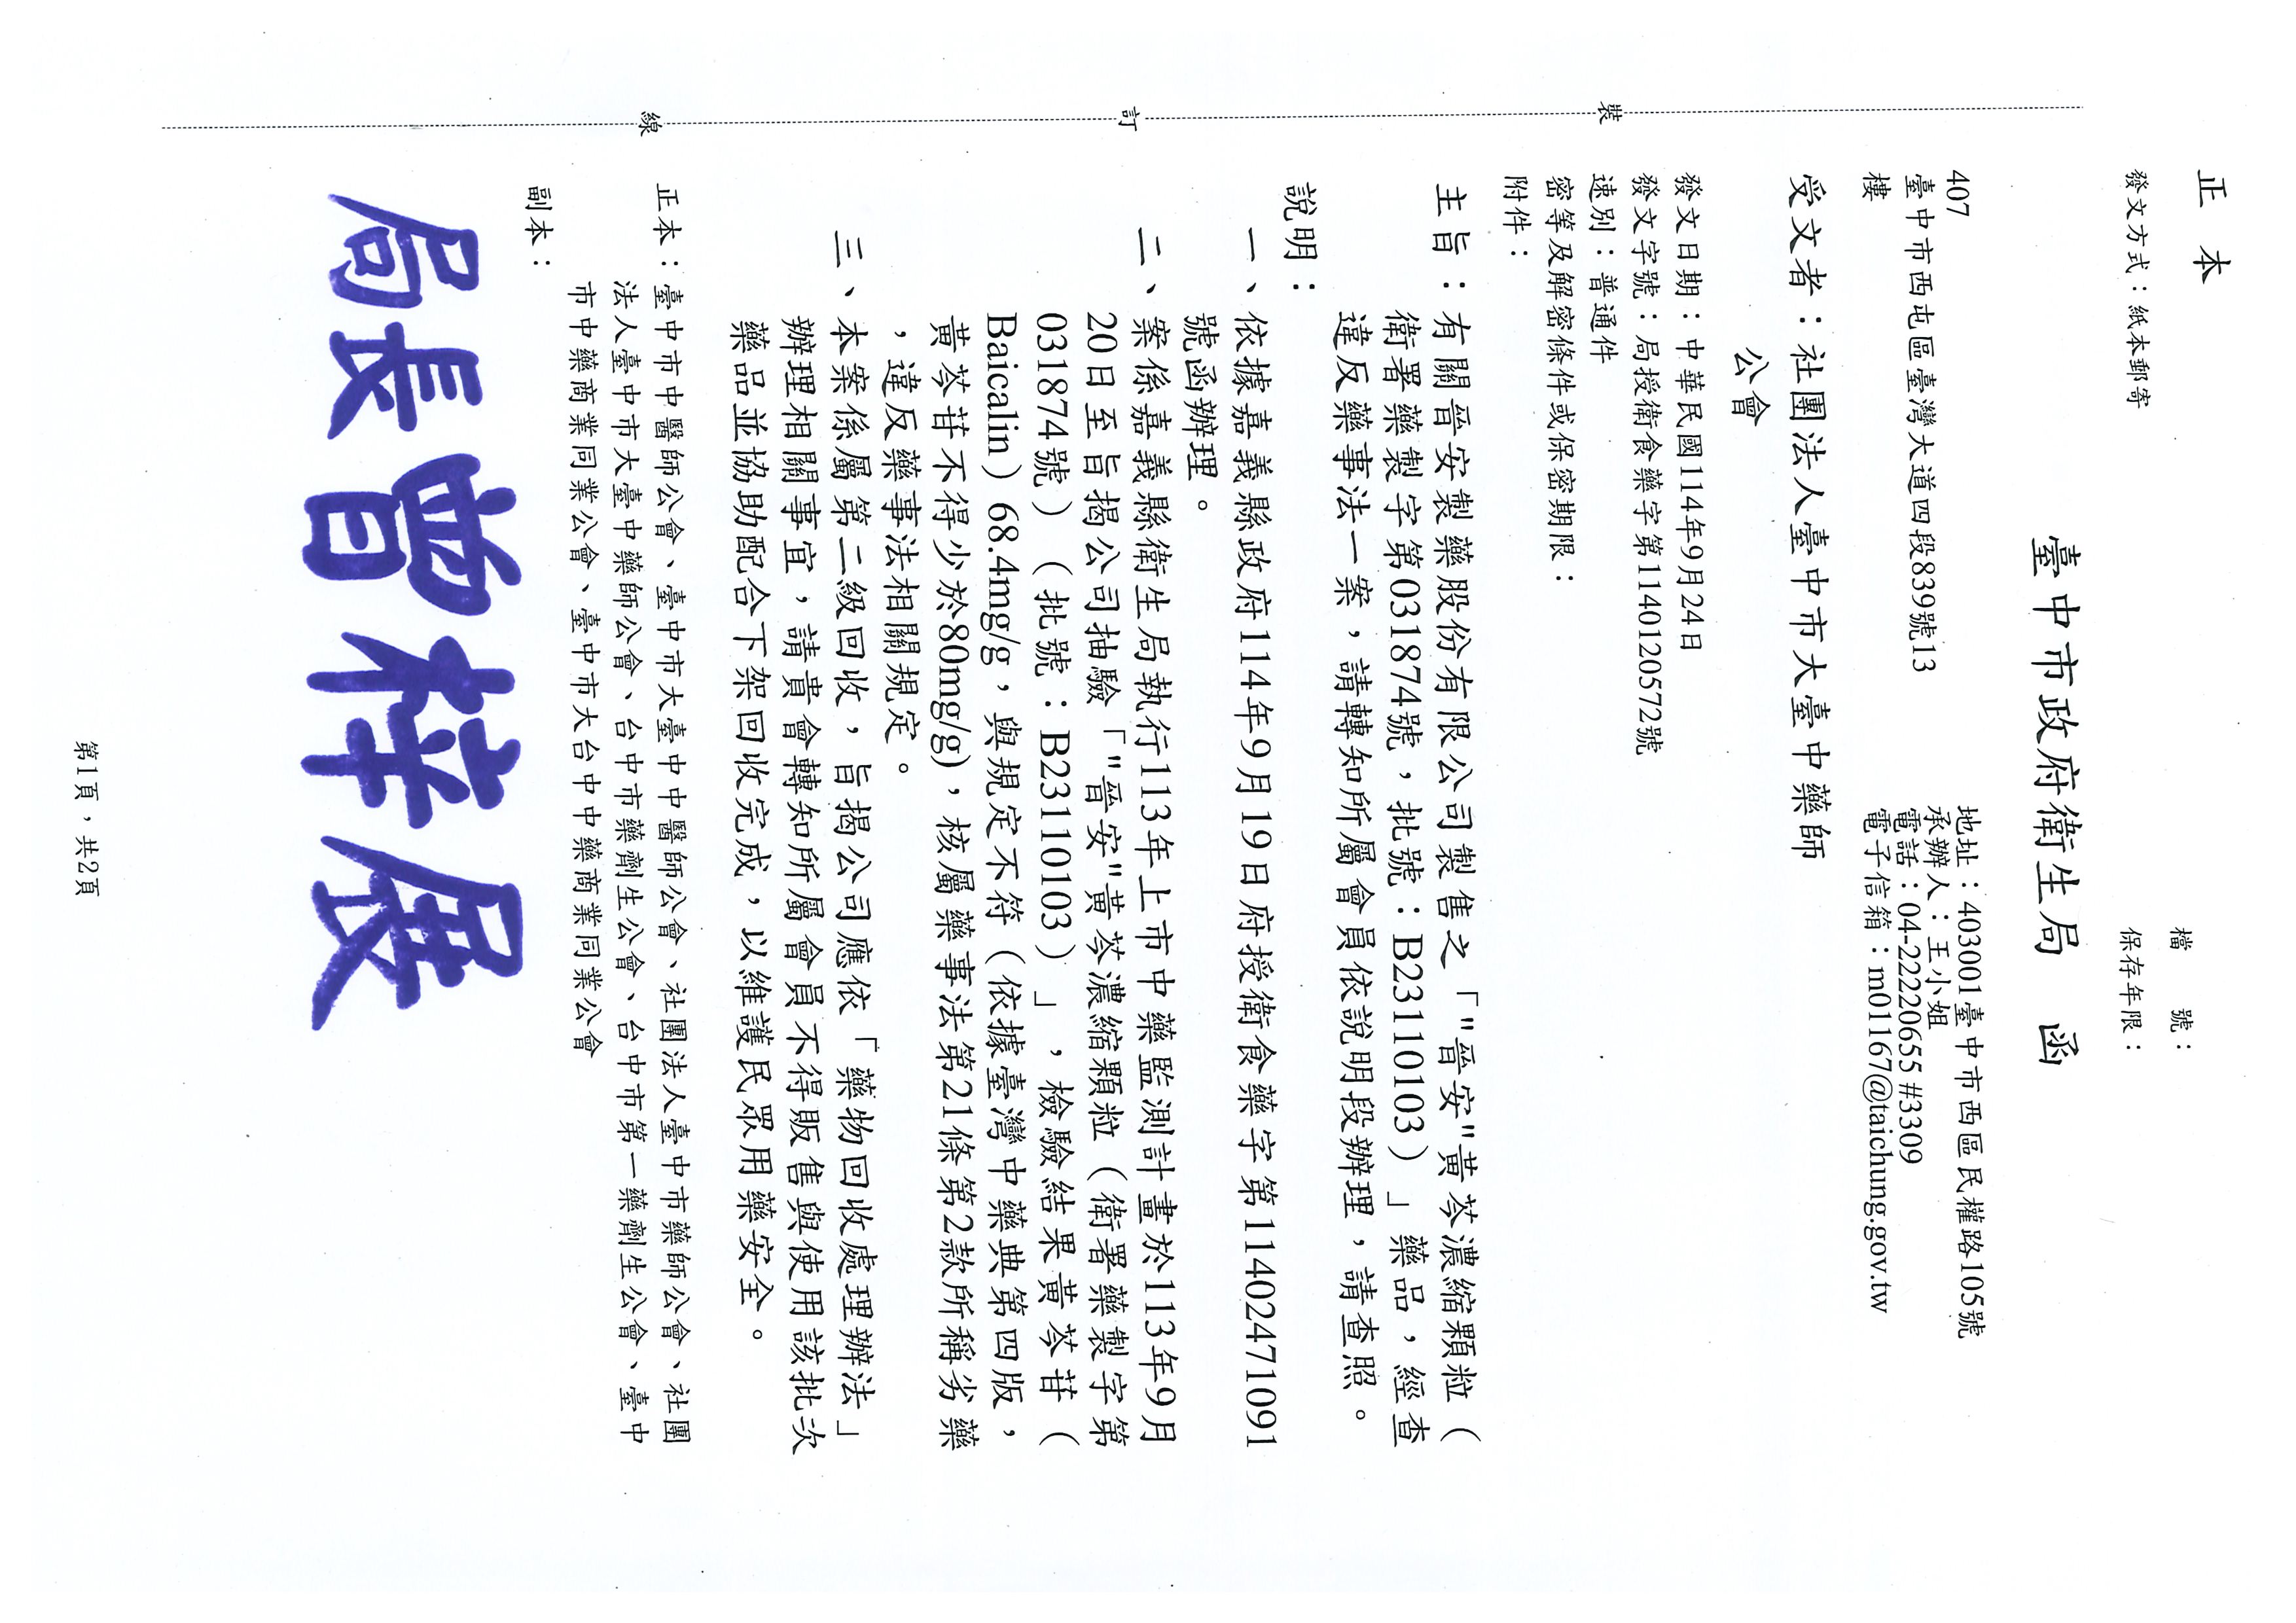 正本
檔　　號：
保存年限：
發文方式：紙本郵寄
臺中市政府衛生局　函
地址：403001臺中市西區民權路105號
承辦人：王小姐
電話：04-22220655 #3309
電子信箱：m01167@taichung.gov.tw
407
臺中市西屯區臺灣大道四段839號13
樓
受文者：社團法人臺中市大臺中藥師
公會
發文日期：中華民國114年9月24日
發文字號：局授衛食藥字第1140120572號
速別：普通件
密等及解密條件或保密期限：
附件：
主旨：有關晉安製藥股份有限公司製售之「"晉安"黃芩濃縮顆粒（
衛署藥製字第031874號，批號：B23110103）」藥品，經查
違反藥事法一案，請轉知所屬會員依說明段辦理，請查照。
說明：
一、依據嘉義縣政府114年9月19日府授衛食藥字第11402471091
號函辦理。
二、案係嘉義縣衛生局執行113年上市中藥監測計畫於113年9月
20日至旨揭公司抽驗「"晉安"黃芩濃縮顆粒（衛署藥製字第
031874號）（批號：B23110103）」，檢驗結果黃芩苷（
Baicalin）68.4mg/g，與規定不符（依據臺灣中藥典第四版，
黃芩苷不得少於80mg/g)，核屬藥事法第21條第2款所稱劣藥
，違反藥事法相關規定。
三、本案係屬第二級回收，旨揭公司應依「藥物回收處理辦法」
辦理相關事宜，請貴會轉知所屬會員不得販售與使用該批次
藥品並協助配合下架回收完成，以維護民眾用藥安全。
正本：臺中市中醫師公會、臺中市大臺中中醫師公會、社團法人臺中市藥師公會、社團
法人臺中市大臺中藥師公會、台中市藥劑生公會、台中市第一藥劑生公會、臺中
市中藥商業同業公會、臺中市大台中中藥商業同業公會
副本：
局長曾梓展
裝
訂
線
第1頁，共2頁